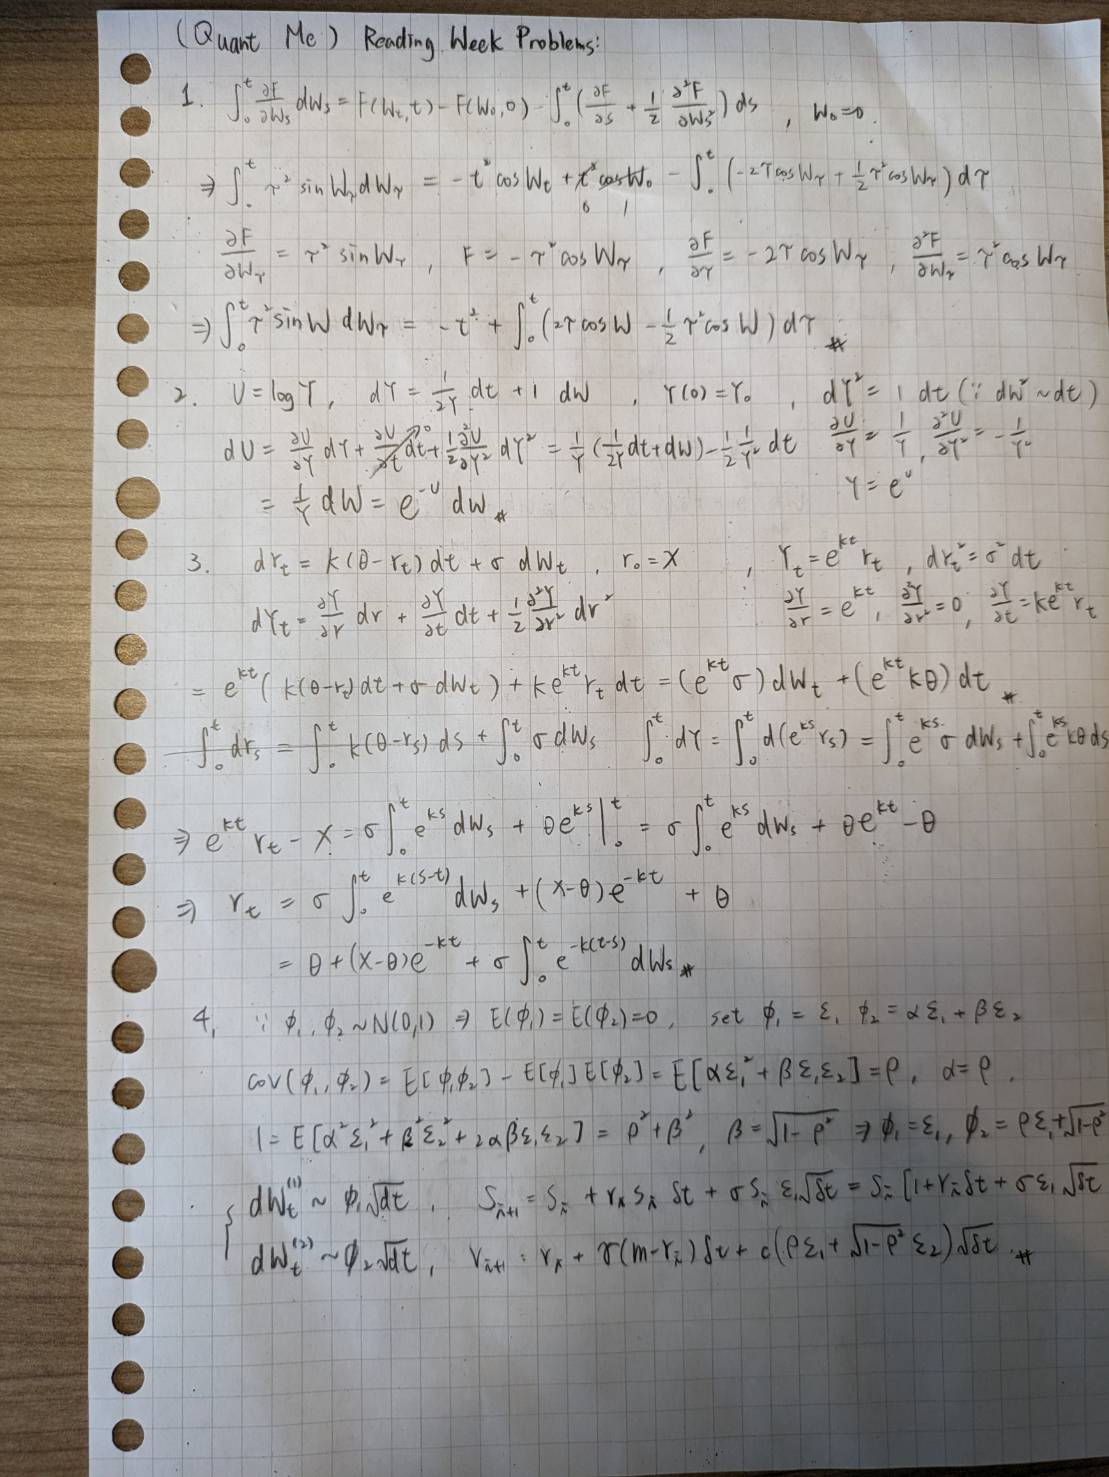 (Quant Mc) Reading Week Problems:
1. ∫₀ᵗ ∂F/∂Wₛ dWₛ = F(Wₜ,t) - F(W₀,0) - ∫₀ᵗ (∂F/∂s + 1/2 ∂²F/∂Wₛ²) ds , W₀=0.
⇒ ∫₀ᵗ τ² sin W_τ dW_τ = -t² cos Wₜ + t² cos W₀ - ∫₀ᵗ (-2τ cos W_τ + 1/2 τ² cos W_τ) dτ
0 1
∂F/∂W_τ = τ² sin W_τ , F = -τ² cos W_τ , ∂F/∂τ = -2τ cos W_τ , ∂²F/∂W_τ² = τ² cos W_τ
⇒ ∫₀ᵗ τ² sin W dW_τ = -t² + ∫₀ᵗ (2τ cos W - 1/2 τ² cos W) dτ #
2. U = log Y, dY = 1/2Y dt + 1 dW , Y(0) = Y₀ , dY² = 1 dt (∵ dW² ~ dt)
dU = ∂U/∂Y dY + ∂U/∂t dt→0 + 1/2 ∂²U/∂Y² dY² = 1/Y (1/2Y dt + dW) - 1/2 1/Y² dt ∂U/∂Y = 1/Y , ∂²U/∂Y² = -1/Y²
= 1/Y dW = e^{-U} dW # Y = e^U
3. drₜ = k(θ-rₜ)dt + σ dWₜ , r₀ = x , Yₜ = e^{kt} rₜ , drₜ² = σ² dt
dYₜ = ∂Y/∂r dr + ∂Y/∂t dt + 1/2 ∂²Y/∂r² dr² ∂Y/∂r = e^{kt}, ∂²Y/∂r² = 0, ∂Y/∂t = ke^{kt} rₜ
= e^{kt}(k(θ-rₜ)dt + σ dWₜ) + ke^{kt} rₜ dt = (e^{kt}σ) dWₜ + (e^{kt}kθ) dt #
∫₀ᵗ drₛ = ∫₀ᵗ k(θ-rₛ) ds + ∫₀ᵗ σ dWₛ ∫₀ᵗ dY = ∫₀ᵗ d(e^{ks}rₛ) = ∫₀ᵗ e^{ks} σ dWₛ + ∫₀ᵗ e^{ks} kθ ds
⇒ e^{kt} rₜ - x = σ ∫₀ᵗ e^{ks} dWₛ + θe^{ks}|₀ᵗ = σ ∫₀ᵗ e^{ks} dWₛ + θe^{kt} - θ
⇒ rₜ = σ ∫₀ᵗ e^{k(s-t)} dWₛ + (x-θ)e^{-kt} + θ
= θ + (x-θ)e^{-kt} + σ ∫₀ᵗ e^{-k(t-s)} dWₛ #
4. ∵ φ₁, φ₂ ~ N(0,1) ⇒ E(φ₁) = E(φ₂) = 0, set φ₁ = ε₁ φ₂ = αε₁ + βε₂
cov(φ₁, φ₂) = E[φ₁φ₂] - E[φ₁]E[φ₂] = E[αε₁² + βε₁ε₂] = ρ, α = ρ.
1 = E[α²ε₁² + β²ε₂² + 2αβε₁ε₂] = ρ² + β², β = √(1-ρ²) ⇒ φ₁ = ε₁, φ₂ = ρε₁ + √(1-ρ²)
{ dWₜ⁽¹⁾ ~ φ₁√dt, Sᵢ₊₁ = Sᵢ + rᵢ Sᵢ δt + σ Sᵢ ε₁√δt = Sᵢ [1 + rᵢδt + σε₁√δt
dWₜ⁽²⁾ ~ φ₂√dt, rᵢ₊₁ = rᵢ + γ(m-rᵢ) δt + c(ρε₁ + √(1-ρ²) ε₂)√δt #